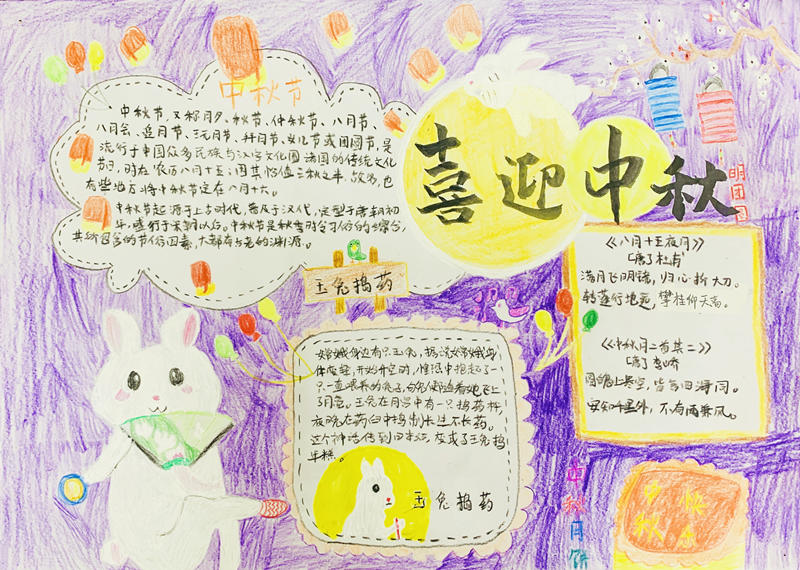 中秋节
中秋节,又称月夕、秋节、仲秋节、八月节、
八月会、追月节、玩月节、拜月节、女儿节或团圆节,是
流行于中国众多民族与汉字文化圈诸国的传统文化
节日,时在农历八月十五;因其恰值三秋之半,故名,也
有些地方将中秋节定在八月十六。
中秋节起源于上古时代,普及于汉代,定型于唐朝初
年,盛行于宋朝以后。中秋节是秋季时令习俗的综合,
其所包含的节俗因素,大都有古老的渊源。
喜迎中秋
明
团
圆
玉兔捣药
《八月十五夜月》
[唐]杜甫
满月飞明镜,归心折大刀。
转蓬行地远,攀桂仰天高。
《中秋月二首其二》
[唐]李峤
圆魄上寒空,皆言四海同。
安知千里外,不有雨兼风。
嫦娥身边有只玉兔,据说嫦娥
体变轻,开始升空时,惶恐中抱起了
一只一直喂养的兔子,白兔便随着她飞上
了月宫。玉兔在月宫中有一只捣药杵,
夜晚在药臼中捣制长生不长药。
这个神话传到日本后,变成了玉兔捣
年糕。
玉兔捣药
中秋月饼
中秋